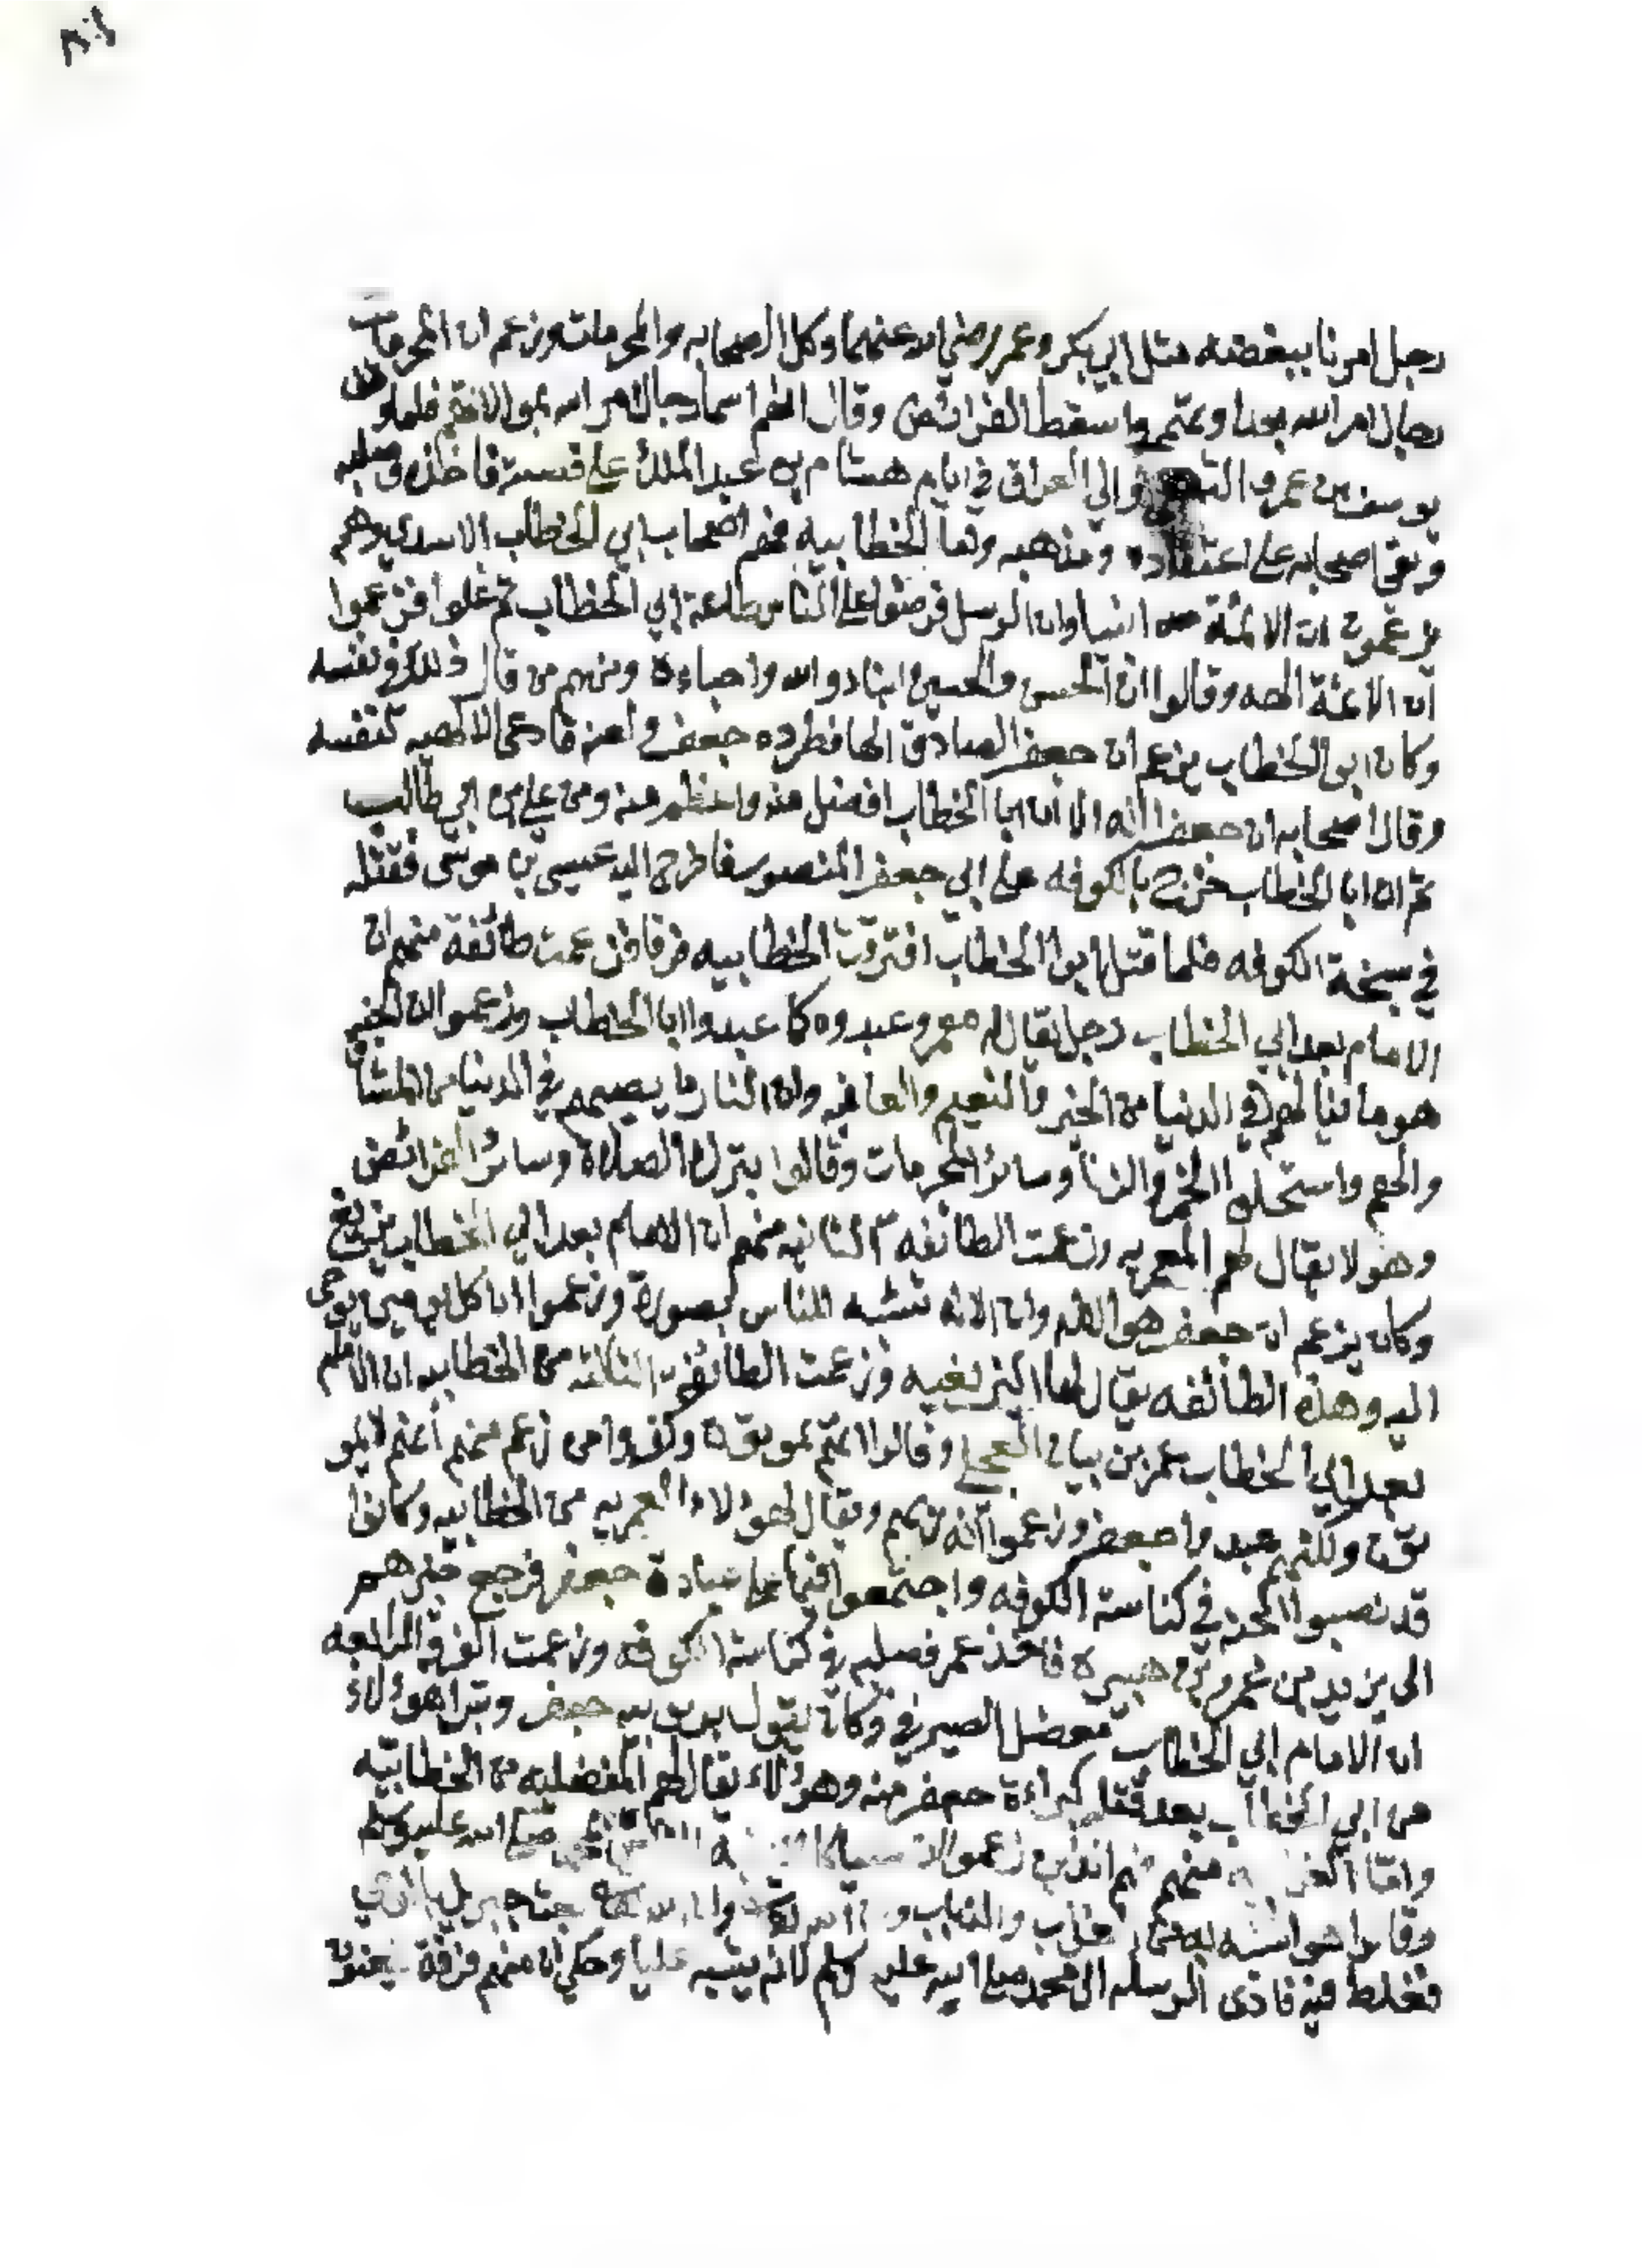 رجل امرنا ببغضه مثل ابي بكر وعمر رضي الله عنهما وكل الصحابه والمحرمات وزعم ان المحرمات
رجال امر الله بعداوتهم واسقط الفرائض وقال انهم اسما رجال امر الله بموالاتهم فلما وقف
يوسف بن عمر والي العراق في ايام هشام بن عبد الملك على قصته فاخذه وصلبه
وبقي اصحابه على اعتقاده ومذهبه واما الخطابيه فهم اصحاب ابي الخطاب الاسدي وهم
يزعمون ان الائمة انبيا وان الرسل فرضوا على الناس طاعة ابي الخطاب ثم غلوا فزعموا
ان الائمة الهه وقالوا ان الحسن والحسين ابناء الله واحباءه ومنهم من قال ذلك في نفسه
وكان ابو الخطاب يزعم ان جعفر الصادق الها فطرده جعفر ولعنه فادعى الالهيه لنفسه
وقال اصحابه ان جعفر اله الا ان ابا الخطاب افضل منه واعظم منه ومن علي بن ابي طالب
ثم ان ابا الخطاب خرج بالكوفه على ابي جعفر المنصور فاخرج اليه عيسى بن موسى فقتله
في سبخة الكوفه فلما قتل ابوا الخطاب افترقت الخطابيه فرقا فزعمت طائفة منهم ان
الامام بعد ابي الخطاب رجل يقال له معمر وعبدوه كما عبدوا ابا الخطاب وزعموا ان الجنه
هو ما ينالهم في الدنيا من الخير والنعيم والعافيه وان النار ما يصيبهم في الدنيا من المشاق
والهم واستحلوا الخمر والزنا وسائر المحرمات وقالوا بترك الصلاة وسائر الفرائض
وهولا يقال لهم المعمريه وزعمت الطائفه الثانيه منهم ان الامام بعد ابي الخطاب بزيغ
وكان يزعم ان جعفر هو الاله وان الاله تشبه للناس بصورة وزعموا ان كل يوحى
اليه وهذه الطائفه يقال لها البزيغيه وزعمت الطائفه الثالثه من الخطابيه ان الامام
بعد ابي الخطاب عمر بن بيان العجلي وقالوا انهم يموتون وكفروا من زعم منهم انهم لا يمو
تون ولكنهم عبدوا جعفر وزعموا انه ربهم ويقال لهؤلاء العمريه من الخطابيه وكانوا
قد نصبوا في كناسة الكوفه واجتمعوا فيها على عبادة جعفر فرجع خبرهم
الى يزيد بن عمرو بن هبيرة فاخذ عمر فصلبه في كناسة الكوفه وزعمت الفرقه الرابعه
ان الامام ابي الخطاب مفضل الصيرفي وكان يقول بربوبيه جعفر وتبرا هؤلاء
من ابي الخطاب بعد قتله لبراءة جعفر منه وهؤلاء يقال لهم المفضليه من الخطابيه
واما منهم فهم الذين زعموا صلى الله عليه وسلم
وقالوا هو اشبه به من والذباب بعث جبريل
فغلط فيه فادى الرساله الى محمد صلى الله عليه وسلم لانه يشبه عليا وحكي ان منهم فرقة يلعنون